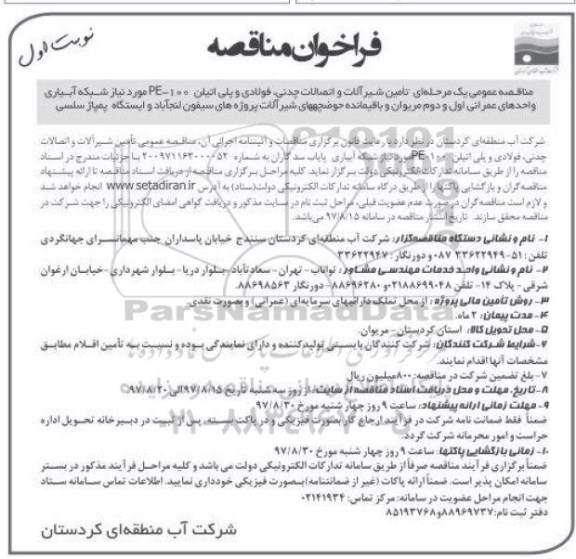 نوبت اول
فراخوان مناقصه
مناقصه عمومی یک مرحله‌ای تأمین شیرآلات و اتصالات چدنی، فولادی و پلی اتیلن PE-۱۰۰ مورد نیاز شبکه آبیاری
واحدهای عمرانی اول و دوم مریوان و باقیمانده حوضچه‌های شیرآلات پروژه های سیفون لنج‌آباد و ایستگاه پمپاژ سلسی
شرکت آب منطقه‌ای کردستان در نظر دارد با رعایت قانون برگزاری مناقصات و آئیننامه اجرائی آن، مناقصه عمومی تأمین شیرآلات و اتصالات
چدنی، فولادی و پلی اتیلن PE-۱۰۰ مورد نیاز شبکه آبیاری پایاب سد گاران به شماره ۲۰۰۹۷۱۱۶۳۰۰۰۰۵۲ با جزئیات مندرج در اسناد
مناقصه را از طریق سامانه تدارکات الکترونیکی دولت برگزار نماید. کلیه مراحل برگزاری مناقصه از دریافت اسناد مناقصه تا ارائه پیشنهاد
مناقصه‌گران و بازگشایی پاکتها از طریق درگاه سامانه تدارکات الکترونیکی دولت (ستاد) به آدرس www.setadiran.ir انجام خواهد شد
و لازم است مناقصه‌گران در صورت عدم عضویت قبلی، مراحل ثبت نام در سایت مذکور و دریافت گواهی امضای الکترونیکی را جهت شرکت در
مناقصه محقق سازند. تاریخ انتشار مناقصه در سامانه ۹۷/۸/۱۵ می‌باشد.
۱- نام و نشانی دستگاه مناقصه‌گزار: شرکت آب منطقه‌ای کردستان سنندج خیابان پاسداران جنب مهمانسرای جهانگردی
تلفن: ۵۱-۳۳۶۲۲۹۴۹ ۰۸۷ و دورنگار: ۳۳۶۲۲۹۴۷
۲- نام و نشانی واحد خدمات مهندسی مشاور: تواناب - تهران - سعادت‌آباد - بلوار دریا - بلوار شهرداری - خیابان ارغوان
شرقی - پلاک ۱۴- تلفن ۰۲۱۸۸۶۹۹۰۴۸ و ۸۸۶۹۶۲۸۰- دورنگار ۸۸۶۹۸۵۶۳.
۳- روش تأمین مالی پروژه: از محل تملک دارائیهای سرمایه‌ای (عمرانی) و بصورت نقدی.
۴- مدت پیمان: ۲ ماه.
۵- محل تحویل کالا: استان کردستان - مریوان.
۶- شرایط شرکت کنندگان: شرکت کنندگان بایستی تولیدکننده و دارای نمایندگی بوده و نسبت به تأمین اقلام مطابق
مشخصات آنها اقدام نمایند.
۷- بلغ تضمین شرکت در مناقصه: ۸۰۰ میلیون ریال
۸- تاریخ، مهلت و محل دریافت اسناد مناقصه از سایت: از روز سه شنبه تاریخ ۹۷/۸/۱۵ الی ۹۷/۸/۲۰
۹- مهلت زمانی ارائه پیشنهاد: ساعت ۹ روز چهار شنبه مورخ ۹۷/۸/۳۰
ضمناً فقط ضمانت نامه شرکت در فرآیند ارجاع کار بصورت فیزیکی و در پاکت بسته، پس از ثبت در دبیرخانه تحویل اداره
حراست و امور محرمانه شرکت گردد.
۱۰- زمانی بازگشایی پاکتها: ساعت ۹ روز چهار شنبه مورخ ۹۷/۸/۳۰
ضمناً برگزاری فرآیند مناقصه صرفاً از طریق سامانه تدارکات الکترونیکی دولت می باشد و کلیه مراحل فرآیند مذکور در بستر
سامانه امکان پذیر است. ضمناً ارائه پاکات (غیر از ضمانتنامه) بصورت فیزیکی خودداری نمایید. اطلاعات تماس سامانه ستاد
جهت انجام مراحل عضویت در سامانه: مرکز تماس: ۰۲۱۴۱۹۳۴
دفتر ثبت نام: ۸۸۹۶۹۷۳۷ و ۸۵۱۹۳۷۶۸
شرکت آب منطقه‌ای کردستان